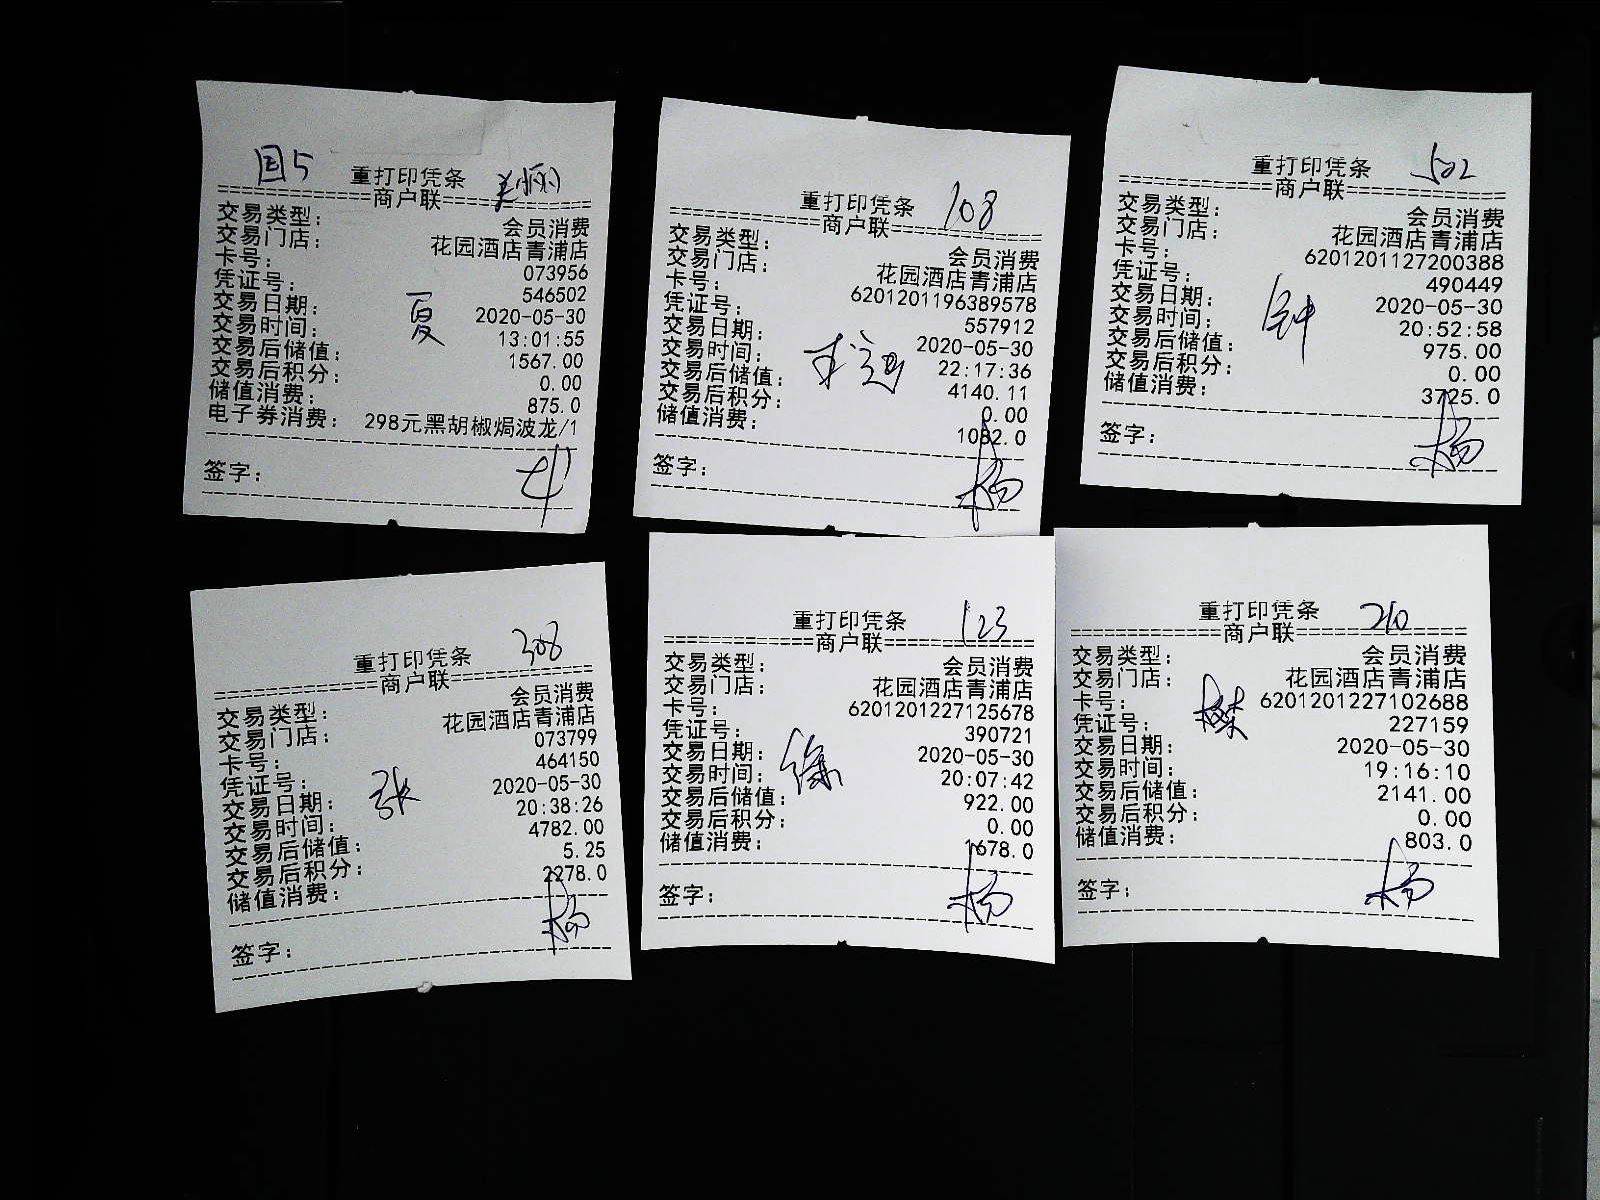 国5
重打印凭条
============商户联============
交易类型： 会员消费
交易门店： 花园酒店青浦店
卡号： 073956
凭证号： 546502
交易日期： 2020-05-30
交易时间： 13:01:55
交易后储值： 1567.00
交易后积分： 0.00
储值消费： 875.0
电子券消费： 298元黑胡椒焗波龙/1
夏
签字：
重打印凭条 108
============商户联============
交易类型： 会员消费
交易门店： 花园酒店青浦店
卡号： 6201201196389578
凭证号： 557912
交易日期： 2020-05-30
交易时间： 22:17:36
交易后储值： 4140.11
交易后积分： 0.00
储值消费： 1082.0
签字： 杨
重打印凭条 502
============商户联============
交易类型： 会员消费
交易门店： 花园酒店青浦店
卡号： 6201201127200388
凭证号： 490449
交易日期： 2020-05-30
交易时间： 20:52:58
交易后储值： 975.00
交易后积分： 0.00
储值消费： 3725.0
钟
签字： 杨
重打印凭条 308
============商户联============
交易类型： 会员消费
交易门店： 花园酒店青浦店
卡号： 073799
凭证号： 464150
交易日期： 2020-05-30
交易时间： 20:38:26
交易后储值： 4782.00
交易后积分： 5.25
储值消费： 2278.0
张
签字： 杨
重打印凭条 123
============商户联============
交易类型： 会员消费
交易门店： 花园酒店青浦店
卡号： 6201201227125678
凭证号： 390721
交易日期： 2020-05-30
交易时间： 20:07:42
交易后储值： 922.00
交易后积分： 0.00
储值消费： 1678.0
徐
签字： 杨
重打印凭条 210
============商户联============
交易类型： 会员消费
交易门店： 花园酒店青浦店
卡号： 6201201227102688
凭证号： 227159
交易日期： 2020-05-30
交易时间： 19:16:10
交易后储值： 2141.00
交易后积分： 0.00
储值消费： 803.0
签字： 杨